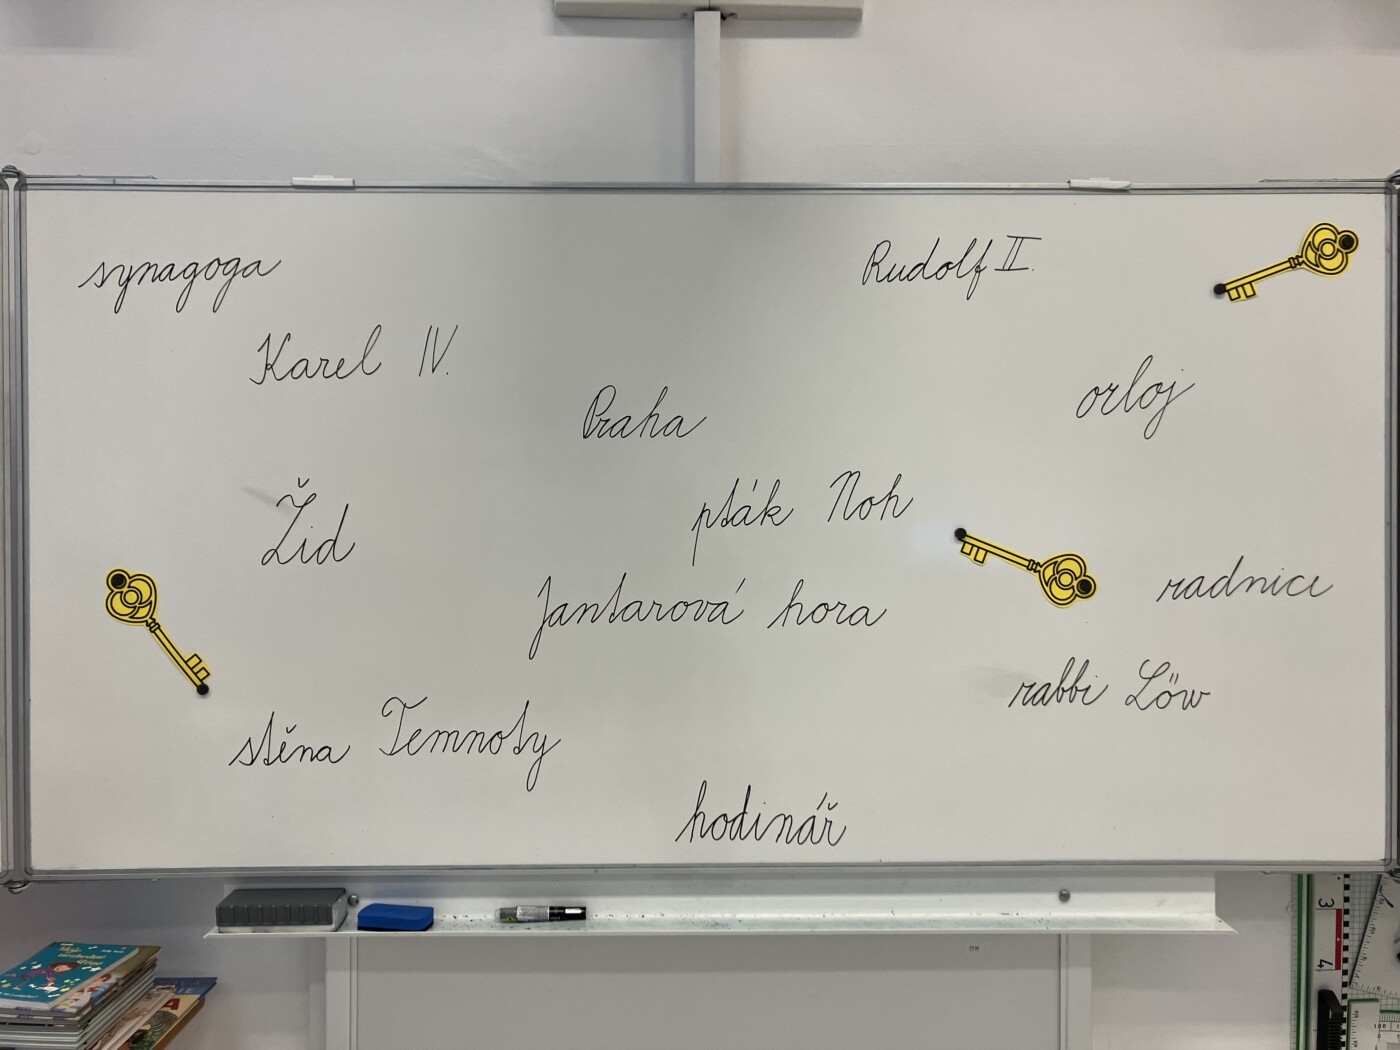 synagoga
Rudolf II.
Karel IV.
orloj
Praha
Žid
pták Noh
radnice
Jantarová hora
rabbi Löw
stěna Temnoty
hodinář
3
4